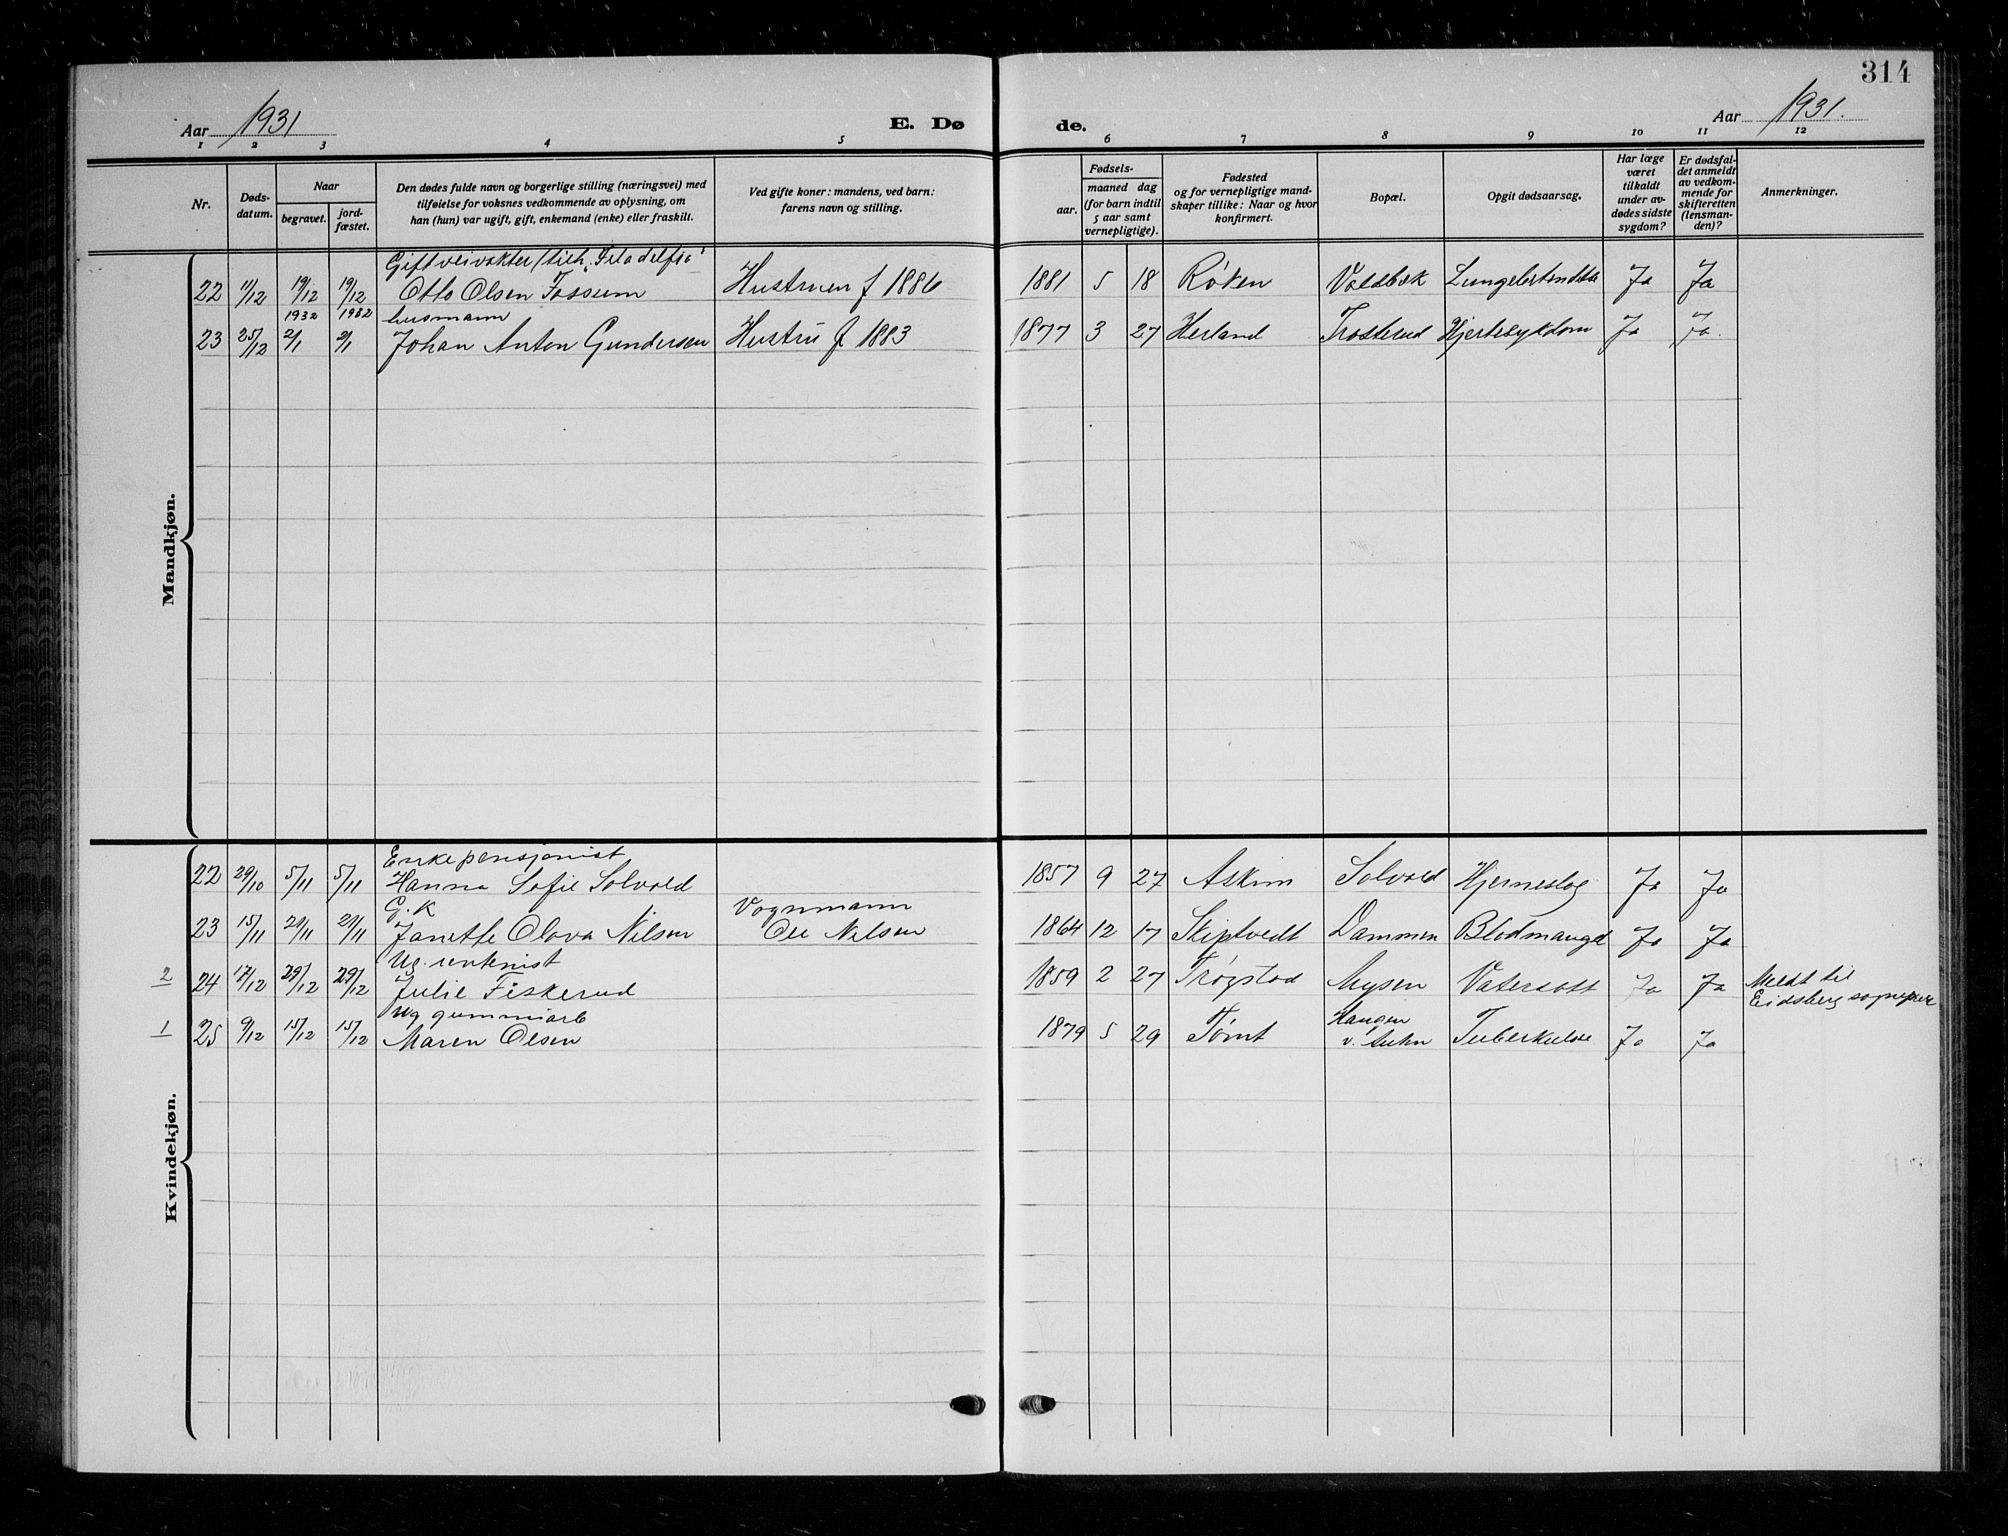 314
Aar 1931
E. Dø
de.
Aar 1931.
1 2 3 4 5 6 7 8 9 10 11 12
Nr.
Døds-
datum.
Naar
begravet.
jord-
fæstet.
Den dødes fulde navn og borgerlige stilling (næringsvei) med
tilføielse for voksnes vedkommende av oplysning, om
han (hun) var ugift, gift, enkemand (enke) eller fraskilt.
Ved gifte koner: mandens, ved barn:
farens navn og stilling.
Fødsels-
aar.
maaned dag
(for barn indtil
5 aar samt
vernepligtige).
Fødested
og for vernepligtige mand-
skaper tillike: Naar og hvor
konfirmert.
Bopæl.
Opgit dødsaarsag.
Har læge
været
tilkaldt
under av-
dødes sidste
sygdom?
Er dødsfal-
det anmeldt
av vedkom-
mende for
skifteretten
(lensman-
den)?
Anmerkninger.
Mandkjøn.
Gift veivokter
22 11/12 19/12 19/12 Otto Olsen Fossum Hustruen f 1886 1881 5 18 Røken Voldbæk Ja Ja
1932 1932 husmann
23 25/12 2/1 2/1 Johan Anton Gundersen Hustru f 1883 1877 3 27 Herland Trosterud Hjertesykdom Ja Ja.
Kvindekjøn.
Enke pensjonist
22 29/10 5/11 5/11 Hanna Sofie Solvold 1857 9 27 Askim Solvold Hjerneslag Ja Ja
G. K Vognmann
23 15/11 21/11 21/11 Janette Olava Nilsen Ole Nilsen 1864 12 17 Skiptvedt Dammen Blodmangel Ja Ja
Ug. rentenist
2 24 17/12 29/12 29/12 Julie Fiskerud 1859 2 27 Trøgstad Mysen Vatersott Ja Ja Meldt til
Eidsberg sogneprest
Ug gummiarb
1 25 9/12 15/12 15/12 Maren Olsen 1879 5 29 Tomt Haugen Tuberkulose Ja Ja